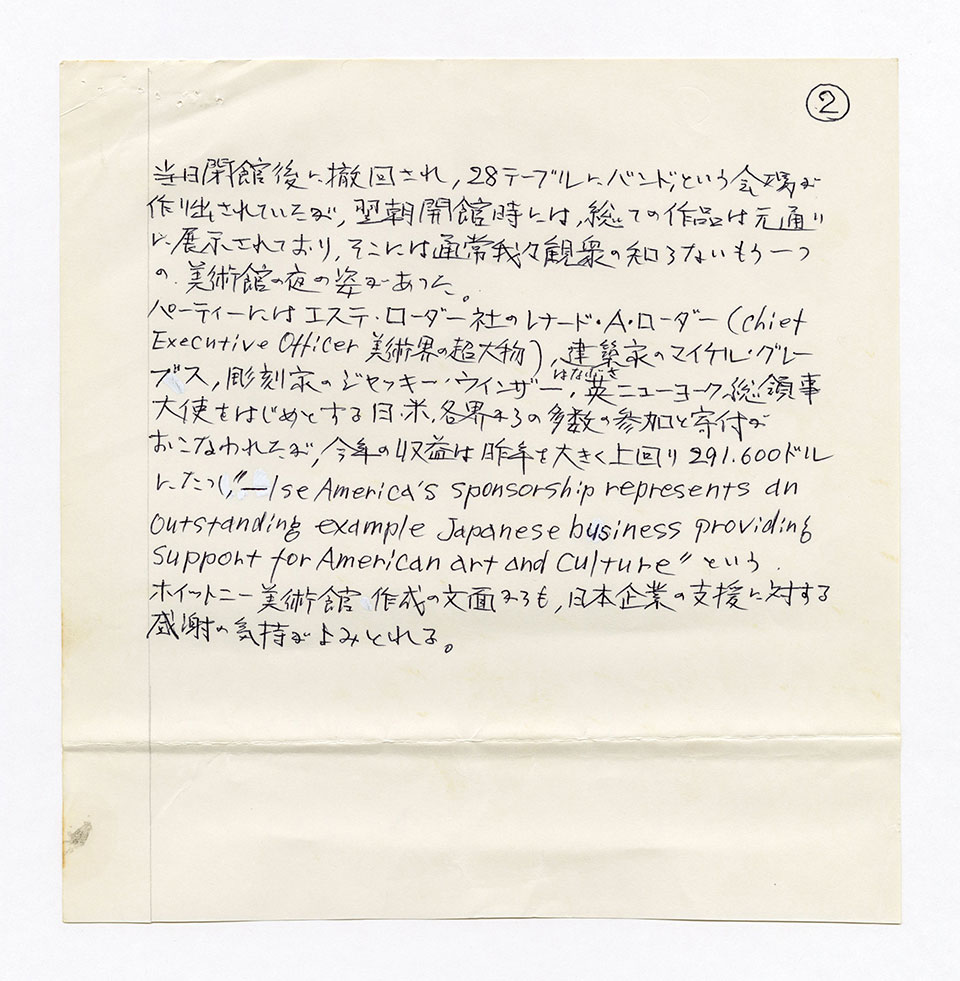 ②
当日閉館後に撤回され,28テーブルにバンド,という会場が
作り出されていたが,翌朝開館時には,総ての作品は元通り
に展示されており,そこには通常我々観衆の知らないもう一つ
の美術館の夜の姿があった。
パーティーにはエステ・ローダー社のレナード・A・ローダー(chief
Executive Officer 美術界の超大物),建築家のマイケル・グレー
ブス,彫刻家のジャッキー・ウインザー,英ニューヨーク総領事
はなぶさ
大使をはじめとする日・米,各界からの多数の参加と寄付が
おこなわれたが,今年の収益は昨年を大きく上回り291.600ドル
にたっし,"—Ise America's sponsorship represents an
outstanding example Japanese business providing
support for American art and culture" という.
ホイットニー美術館 作成の文面からも,日本企業の支援に対する
感謝の気持がよみとれる。